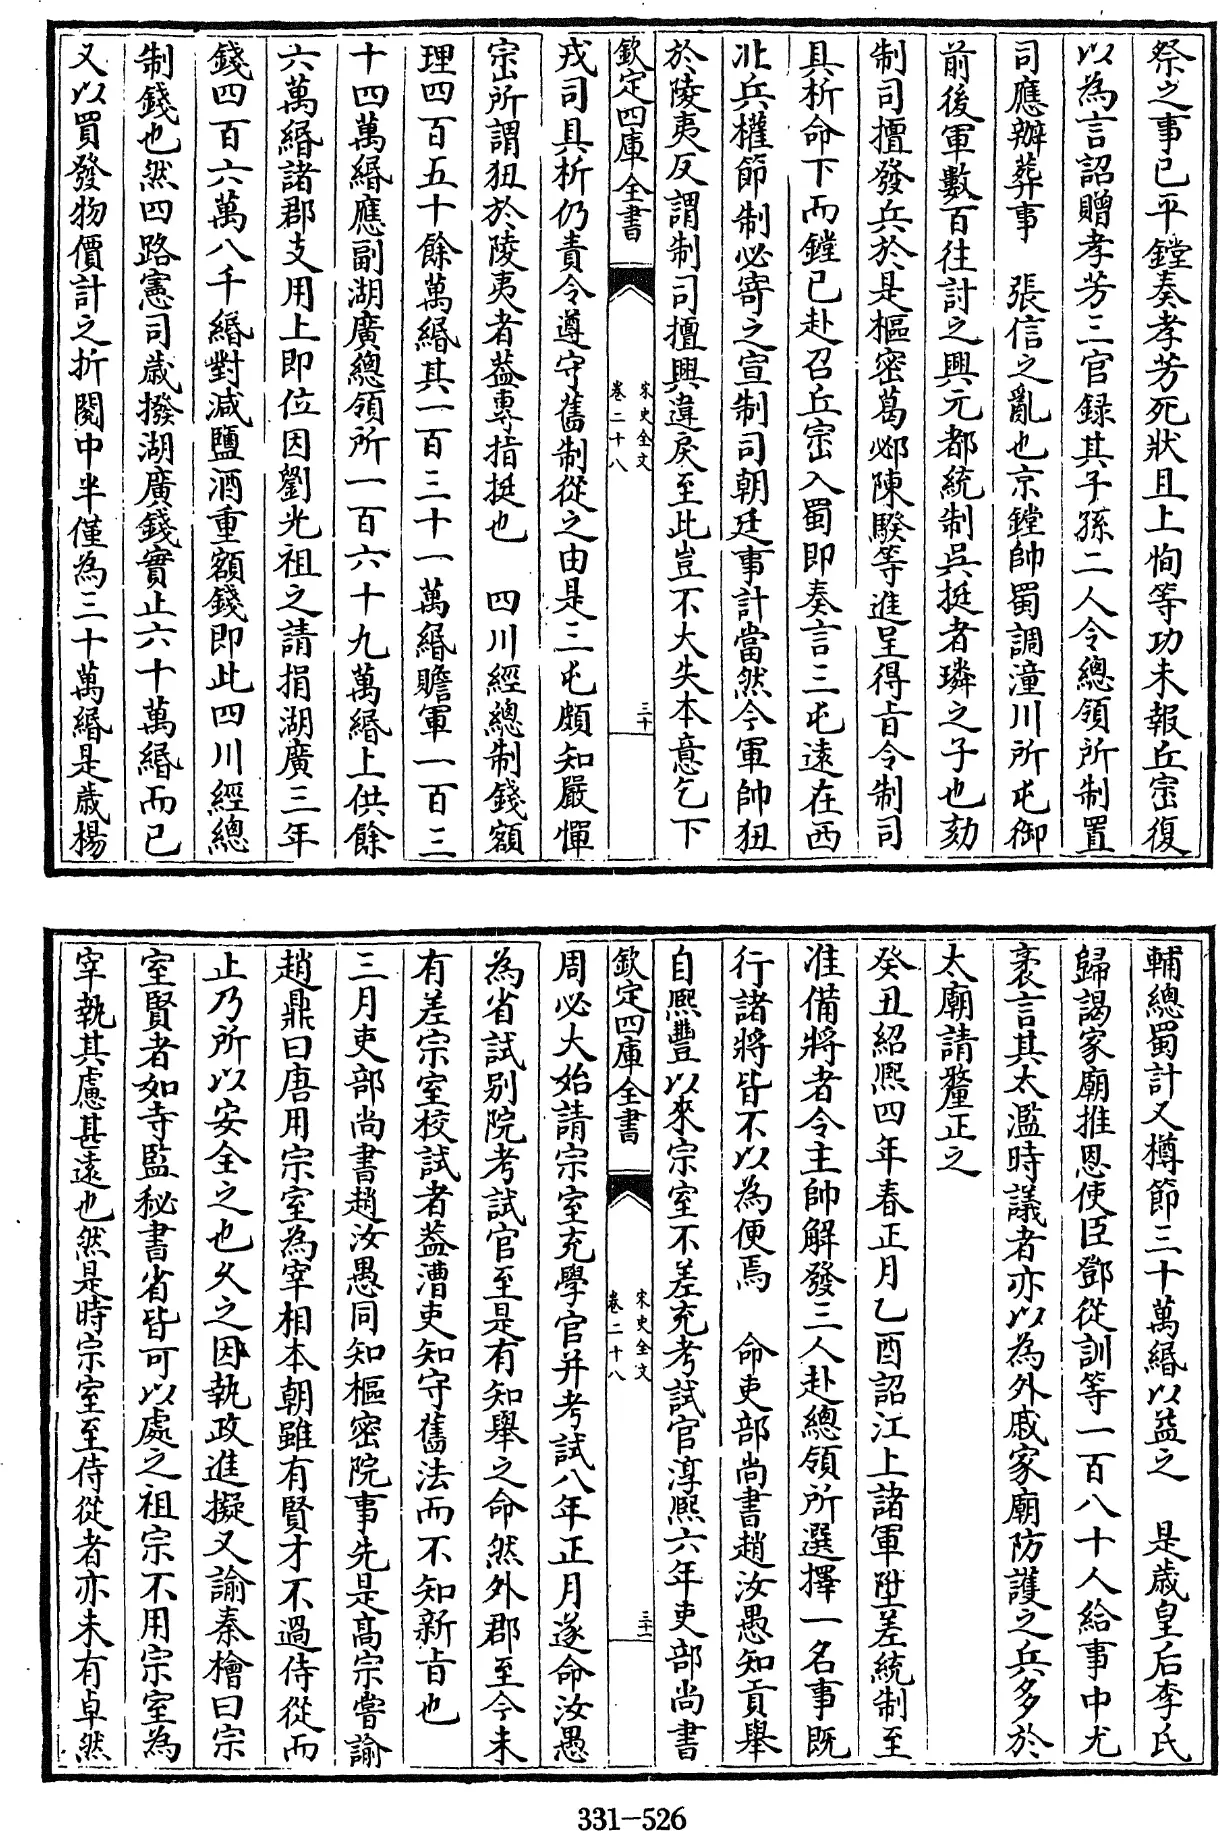 祭之事已平鏜奏孝芳死狀且上恂等功未報丘崈復
以為言詔贈孝芳三官録其子孫二人令總領所制置
司應辦葬事　張信之亂也京鏜帥蜀調潼川所屯御
前後軍數百往討之興元都統制吳挺者璘之子也劾
制司擅發兵於是樞密葛邲陳騤等進呈得㫖令制司
具析命下而鏜已赴召丘崈入蜀即奏言三屯逺在西
北兵權節制必寄之宣制司朝廷事計當然今軍帥狃
於陵夷反謂制司擅興違戾至此豈不大失本意乞下
欽定四庫全書
宋史全文
卷二十八
三十
戎司具析仍責令遵守舊制從之由是三屯頗知嚴憚
崈所謂狃於陵夷者葢專指挺也　四川經總制錢額
理四百五十餘萬緡其一百三十一萬緡贍軍一百三
十四萬緡應副湖廣總領所一百六十九萬緡上供餘
六萬緡諸郡支用上即位因劉光祖之請捐湖廣三年
錢四百六萬八千緡對減鹽酒重額錢即此四川經總
制錢也然四路憲司歲撥湖廣錢實止六十萬緡而已
又以買發物價計之折閱中半僅為三十萬緡是歲楊
輔總蜀計又樽節三十萬緡以益之　是歲皇后李氏
歸謁家廟推恩使臣鄧從訓等一百八十人給事中尤
袤言其太濫時議者亦以為外戚家廟防護之兵多於
太廟請釐正之
癸丑紹熙四年春正月乙酉詔江上諸軍陞差統制至
准備將者令主帥解發三人赴總領所選擇一名事既
行諸將皆不以為便焉　命吏部尚書趙汝愚知貢舉
自熙豐以來宗室不差充考試官淳熙六年吏部尚書
欽定四庫全書
宋史全文
卷二十八
三十一
周必大始請宗室充學官并考試八年正月遂命汝愚
為省試别院考試官至是有知舉之命然外郡至今未
有差宗室校試者葢漕吏知守舊法而不知新㫖也
三月吏部尚書趙汝愚同知樞密院事先是髙宗嘗諭
趙鼎曰唐用宗室為宰相本朝雖有賢才不過侍從而
止乃所以安全之也久之因執政進擬又諭秦檜曰宗
室賢者如寺監秘書省皆可以處之祖宗不用宗室為
宰執其慮甚逺也然是時宗室至侍從者亦未有卓然
331-526